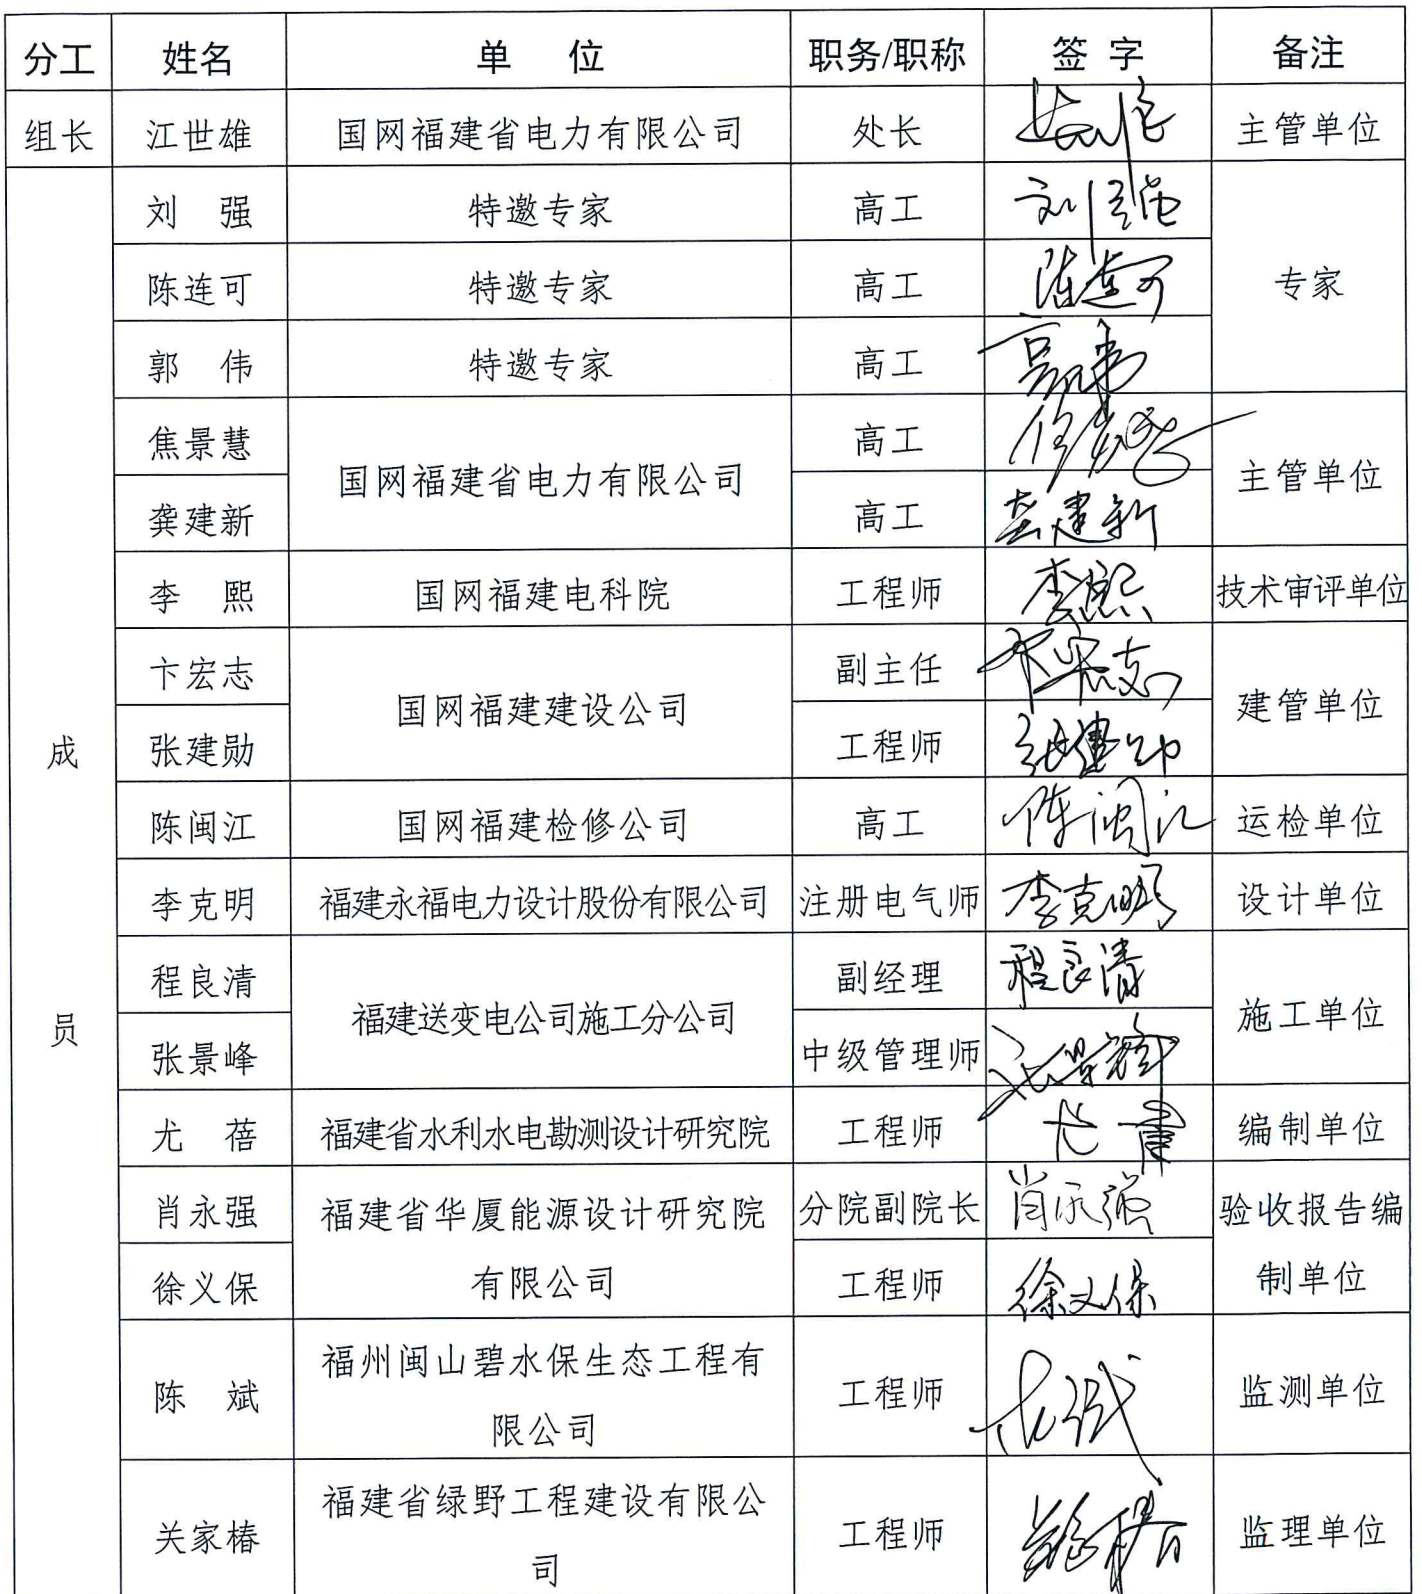 分工 姓名 单 位 职务/职称 签 字 备注
组长 江世雄 国网福建省电力有限公司 处长 主管单位
成员
刘 强 特邀专家 高工 刘强 专家
陈连可 特邀专家 高工 陈连可
郭 伟 特邀专家 高工
焦景慧 国网福建省电力有限公司 高工 主管单位
龚建新 高工 龚建新
李 熙 国网福建电科院 工程师 李熙 技术审评单位
卞宏志 国网福建建设公司 副主任 卞宏志 建管单位
张建勋 工程师 张建勋
陈闽江 国网福建检修公司 高工 陈闽江 运检单位
李克明 福建永福电力设计股份有限公司 注册电气师 李克明 设计单位
程良清 福建送变电公司施工分公司 副经理 程良清 施工单位
张景峰 中级管理师 张景峰
尤 蓓 福建省水利水电勘测设计研究院 工程师 编制单位
肖永强 福建省华厦能源设计研究院 分院副院长 肖永强 验收报告编
徐义保 有限公司 工程师 徐义保 制单位
福州闽山碧水保生态工程有
陈 斌 工程师 监测单位
限公司
福建省绿野工程建设有限公
关家椿 工程师 监理单位
司